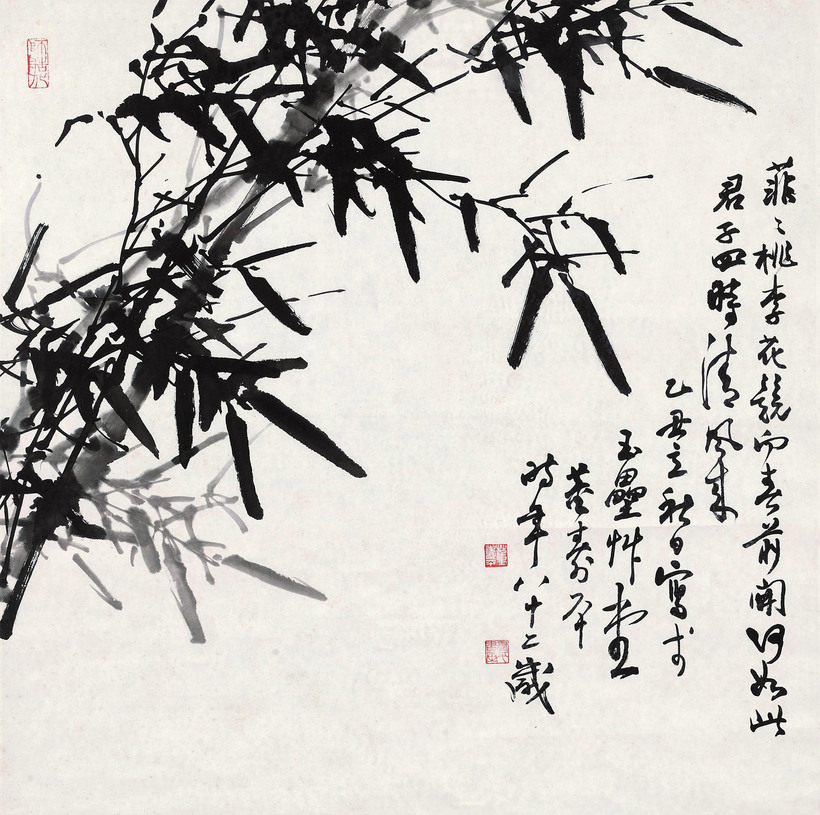 菲々桃李花競向春前開何如此
君子四時清風來
乙丑立秋日寫于
玉壘艸堂
董壽平
時年八十二歲